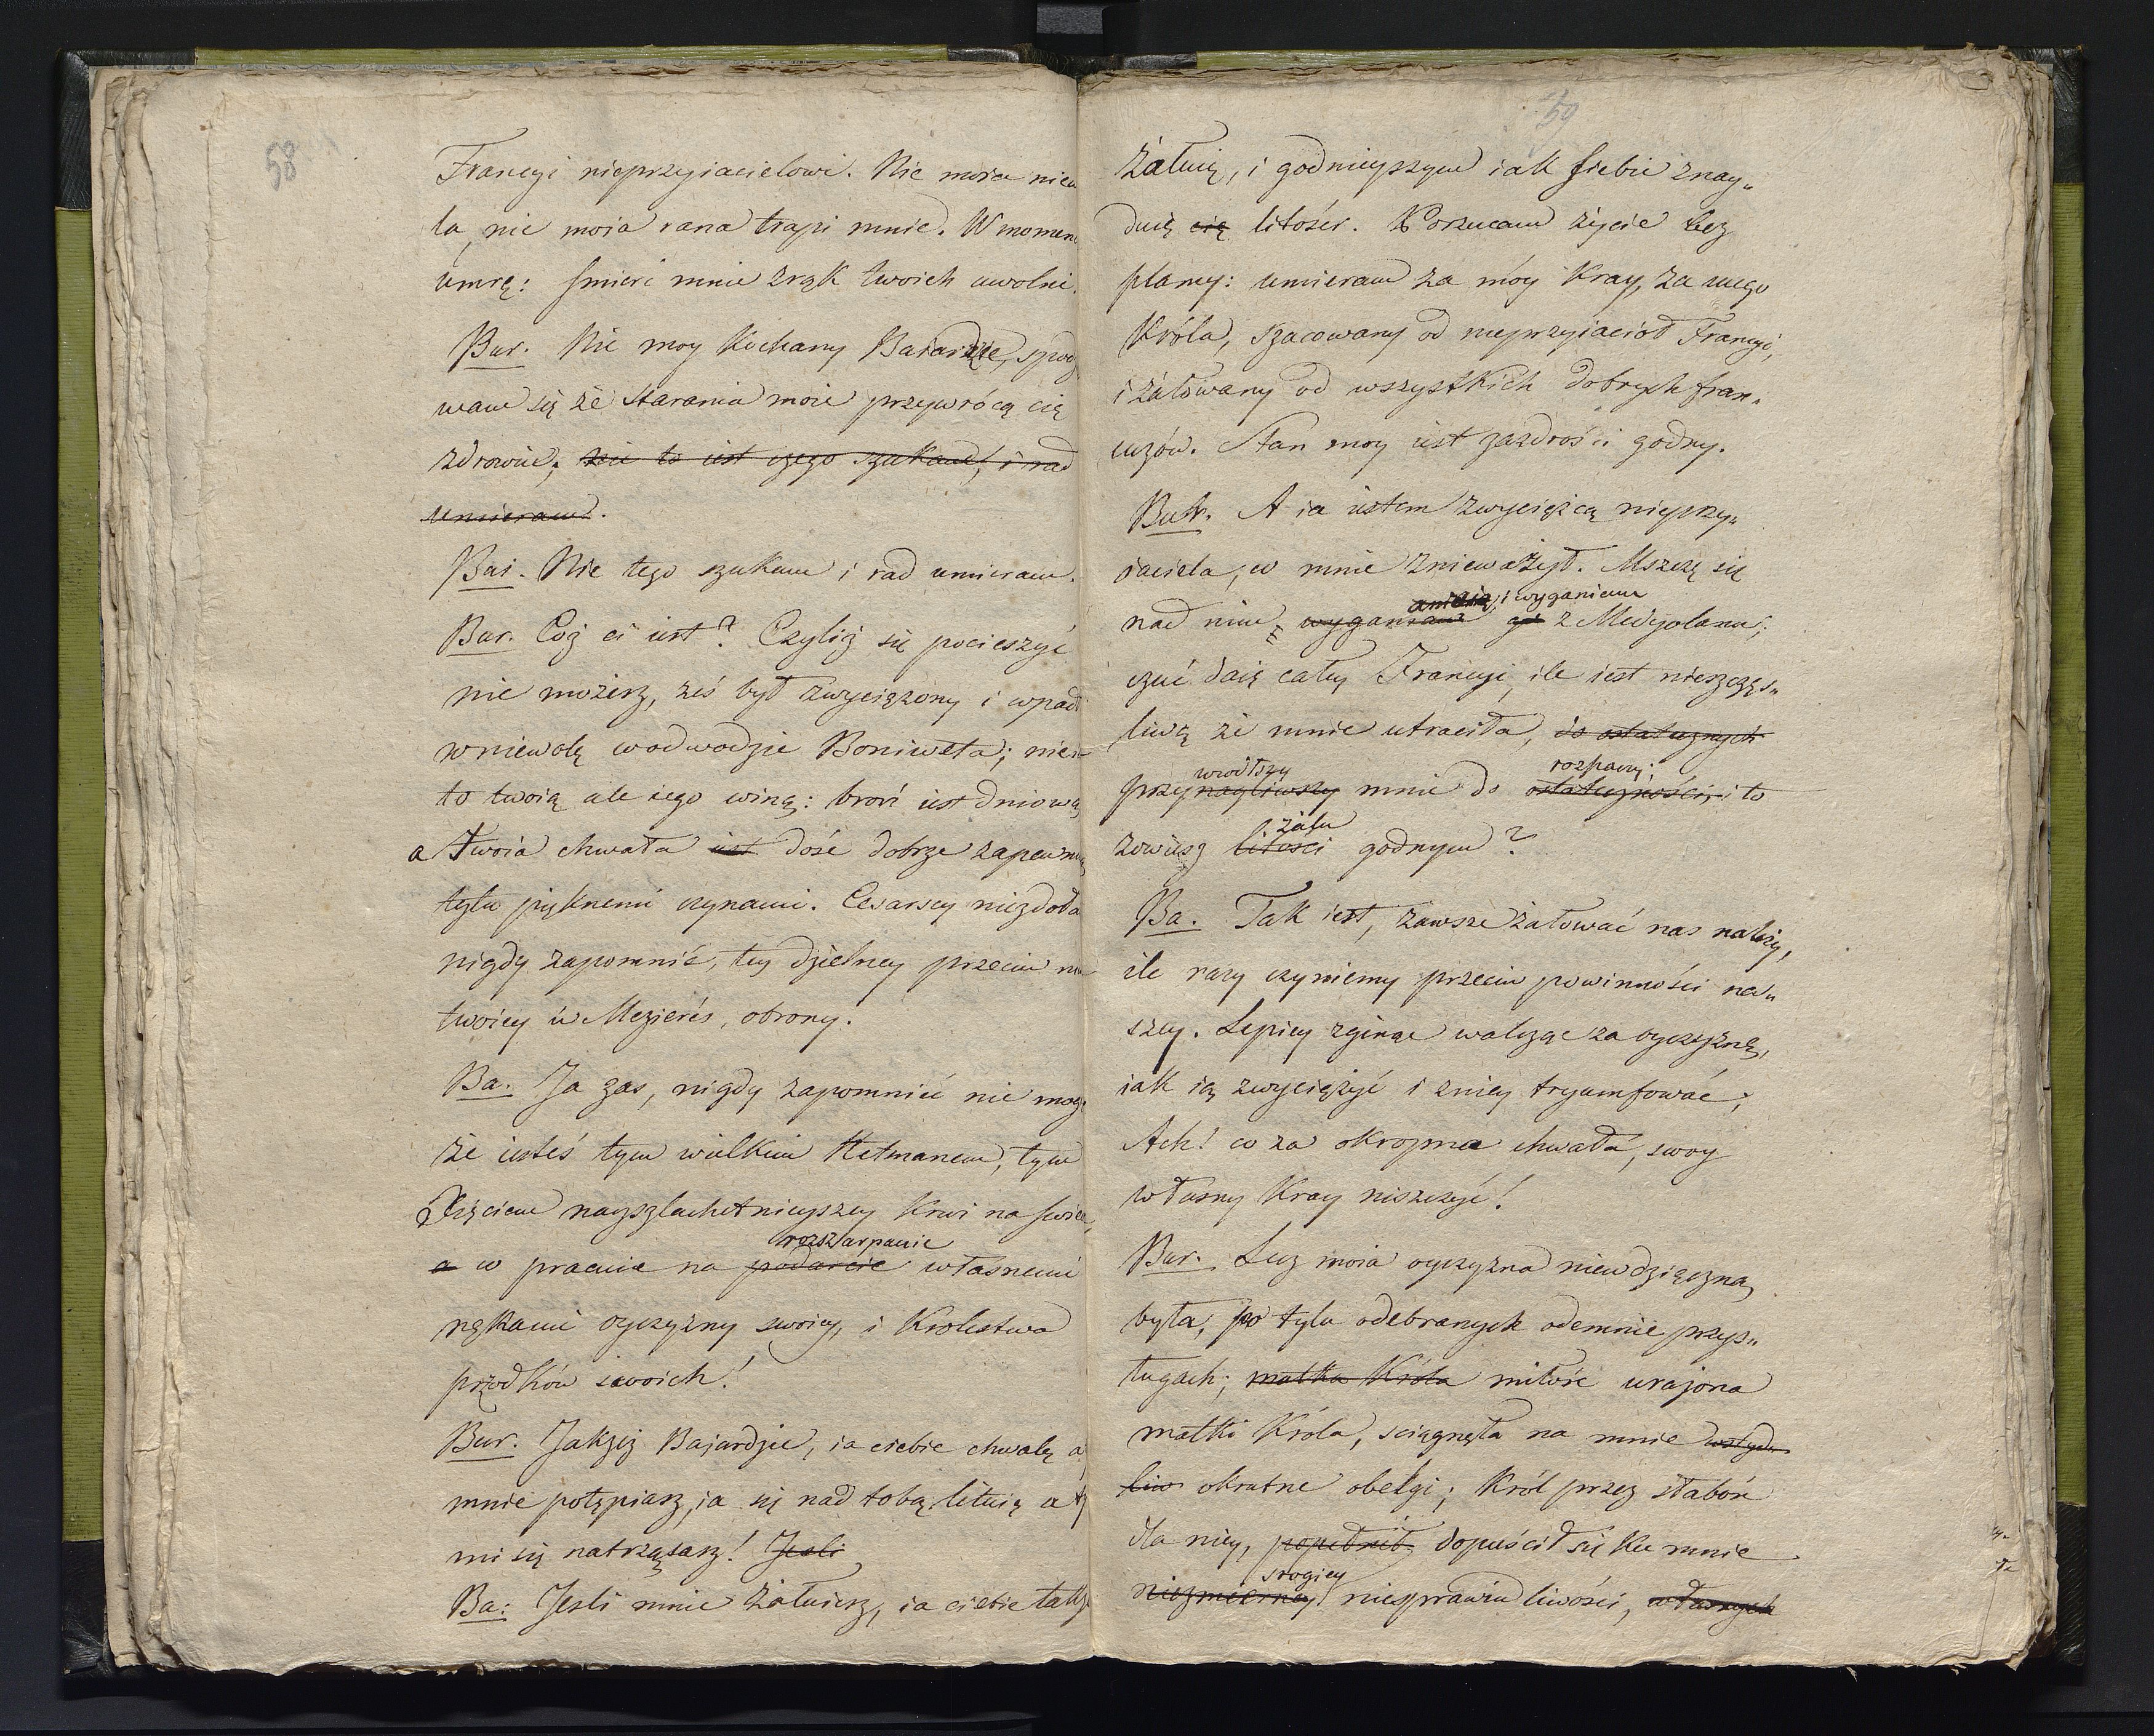 58
Francyi nieprzyiacielowi. Nie moia niew
la, nie moia rana trapi mnie. W momen
umrę: śmierć mnie z rąk twoich uwolni.
Bur. Nie moy kochany Baiardzie, spodz
wam się że starania moie przywrócą cię
zdrowiu; nie to iest czego szukam, i rad
umieram.
Bai. Nie tego szukam i rad umieram.
Bur. Cóż ci iest? Czyliż się pocieszyć
nie możesz, żeś był zwyciężony i wpadł
w niewolą w odwodzie Boniweta; nie ie
to twoią ale iego winą: broń iest dniowa,
a twoia chwała iest dość dobrze zapewn
tylu pięknemi czynami. Cesarscy niezdoła
nigdy zapomnić, tey dzielney przeciw n
twoiey w Mezierés, obrony.
Ba. Ja zas, nigdy zapomnieć nie mogę
że iesteś tym wielkim Hetmanem, tym
Xięciem nayszlachetnieyszey krwi na świe
rozszarpanie
a w pracuie na podarcie własnemi
rękami oyczyzny swoiey, i Krolestwa
przodków swoich!
Bur. Jakżeż Bajardzie, ia ciebie chwalę a
mnie potępiasz, ia się nad tobą lituię a ty
mi się natrząsasz! Jesli
Ba: Jesli mnie żałuiesz, ia ciebie takż
59
żałuię, i godnieyszym iak siebie znay„
duię cię litości. Porzucam życie bez
plamy: umieram za móy Kray, za mego
Króla, szacowany od nieprzyiaciół Francyi,
i żałowany od wszystkich dobrych fran„
cuzów. Stan moy iest zazdrości godny.
Bur. A ia iestem zwyciężcą nieprzy„
iaciela, co mnie znieważył. Mszczę się
i wyganiam
nad nim, wyganiam go z Medyolanu;
czuć daię całey Francyi, ile iest nieszczęś„
liwą że mnie utraciła, do ostatecznych
wiódłszy rozpaczy;
przynagliwszy mnie do ostateczności, i to
żalu
zowiesz litości godnym?
Ba. Tak iest, zawsze żałować nas należy,
ile razy czyniemy przeciw powinności na„
szey. Lepiey zginąc walcząc za oyczyznę,
iak ią zwyciężyć i z niey tryumfować;
Ach! co za okropna chwała, swoy
własny Kray niszczyć!
Bur. Lecz moia oyczyzna niewdzięczną
była, po tylu odebranych odemnie przys„
ługach; matka Króla miłość urajona
matki Króla, sciągnęła na mnie wstyd„
liw okrutne obelgi; Król przez słabość
dla niey, popełnił dopuścił się ku mnie
srogiey
niezmierney niesprawiedliwości, własnych